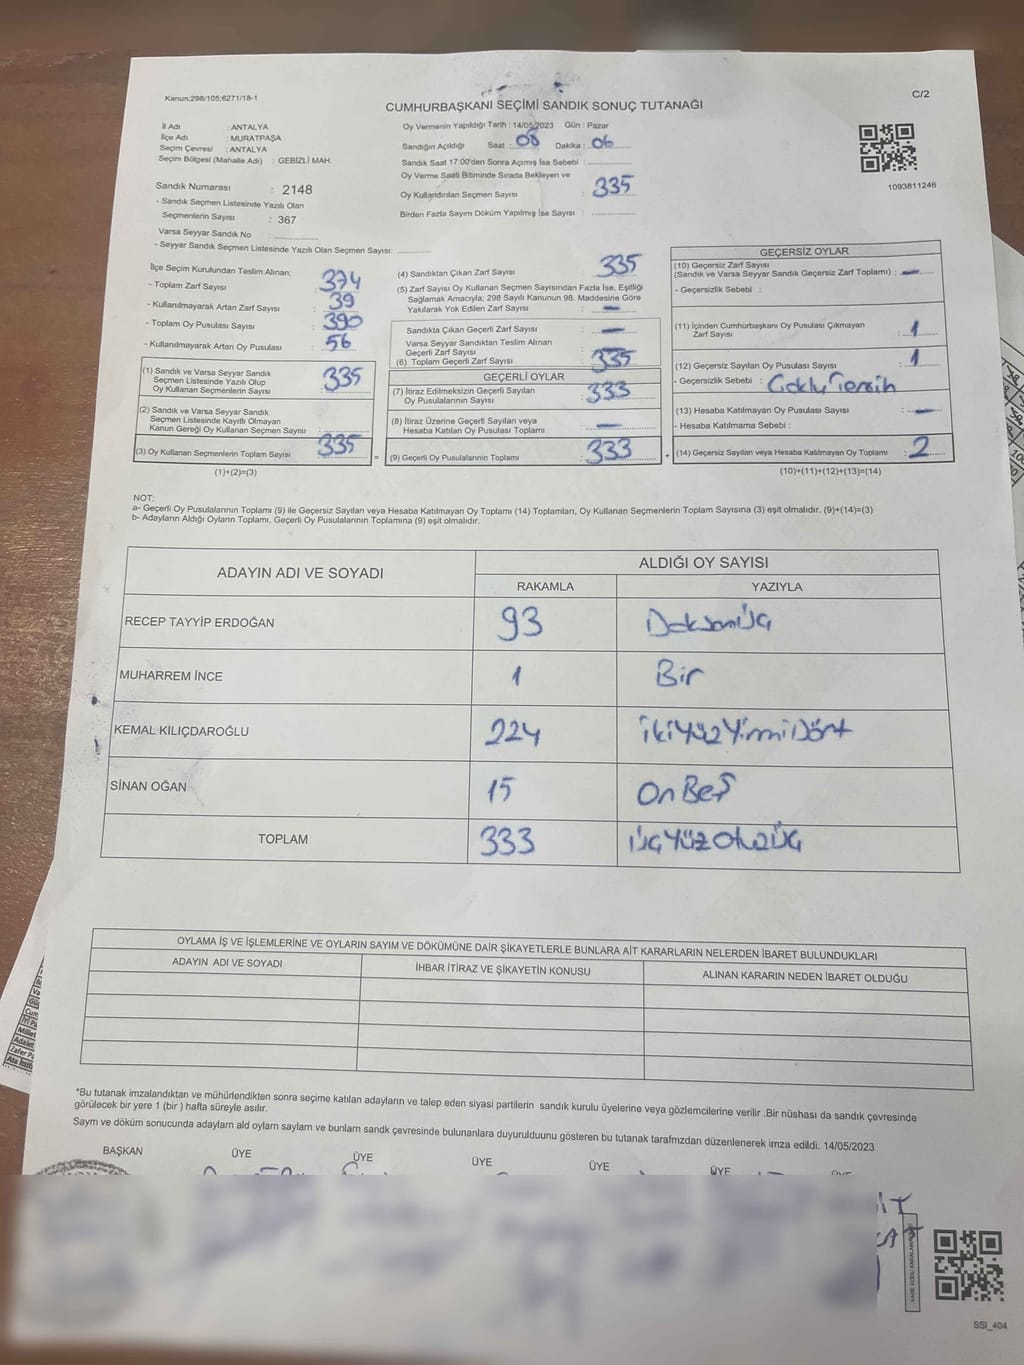 Kanun;298/105;6271/18-1
CUMHURBAŞKANI SEÇİMİ SANDIK SONUÇ TUTANAĞI
C/2
İl Adı : ANTALYA
İlçe Adı : MURATPAŞA
Seçim Çevresi : ANTALYA
Seçim Bölgesi (Mahalle Adı) : GEBİZLİ MAH.
Sandık Numarası : 2148
- Sandık Seçmen Listesinde Yazılı Olan
Seçmenlerin Sayısı : 367
Varsa Seyyar Sandık No :
- Seyyar Sandık Seçmen Listesinde Yazılı Olan Seçmen Sayısı:
Oy Vermenin Yapıldığı Tarih : 14/05/2023 Gün : Pazar
Sandığın Açıldığı Saat : 08 Dakika : 06
Sandık Saat 17:00'den Sonra Açmış İse Sebebi :
Oy Verme Saati Bitiminde Sırada Bekleyen ve
Oy Kullandırılan Seçmen Sayısı : 335
Birden Fazla Sayım Döküm Yapılmış İse Sayısı :
1093811246
İlçe Seçim Kurulundan Teslim Alınan;
- Toplam Zarf Sayısı : 374
- Kullanılmayarak Artan Zarf Sayısı : 39
- Toplam Oy Pusulası Sayısı : 390
- Kullanılmayarak Artan Oy Pusulası : 56
(1) Sandık ve Varsa Seyyar Sandık
Seçmen Listesinde Yazılı Olup
Oy Kullanan Seçmenlerin Sayısı : 335
(2) Sandık ve Varsa Seyyar Sandık
Seçmen Listesinde Kayıtlı Olmayan
Kanun Gereği Oy Kullanan Seçmen Sayısı :
(3) Oy Kullanan Seçmenlerin Toplam Sayısı : 335
(1)+(2)=(3)
=
(4) Sandıktan Çıkan Zarf Sayısı : 335
(5) Zarf Sayısı Oy Kullanan Seçmen Sayısından Fazla İse, Eşitliği
Sağlamak Amacıyla; 298 Sayılı Kanunun 98. Maddesine Göre
Yakılarak Yok Edilen Zarf Sayısı : —
Sandıkta Çıkan Geçerli Zarf Sayısı : —
Varsa Seyyar Sandıktan Teslim Alınan
Geçerli Zarf Sayısı :
(6) Toplam Geçerli Zarf Sayısı : 335
GEÇERLİ OYLAR
(7) İtiraz Edilmeksizin Geçerli Sayılan
Oy Pusulalarının Sayısı : 333
(8) İtiraz Üzerine Geçerli Sayılan veya
Hesaba Katılan Oy Pusulası Toplamı : —
(9) Geçerli Oy Pusulalarının Toplamı : 333
+
GEÇERSİZ OYLAR
(10) Geçersiz Zarf Sayısı
(Sandık ve Varsa Seyyar Sandık Geçersiz Zarf Toplamı) : —
- Geçersizlik Sebebi :
(11) İçinden Cumhurbaşkanı Oy Pusulası Çıkmayan
Zarf Sayısı : 1
(12) Geçersiz Sayılan Oy Pusulası Sayısı : 1
- Geçersizlik Sebebi :
(13) Hesaba Katılmayan Oy Pusulası Sayısı : —
- Hesaba Katılmama Sebebi :
(14) Geçersiz Sayılan veya Hesaba Katılmayan Oy Toplamı : 2
(10)+(11)+(12)+(13)=(14)
NOT:
a- Geçerli Oy Pusulalarının Toplamı (9) ile Geçersiz Sayılan veya Hesaba Katılmayan Oy Toplamı (14) Toplamları, Oy Kullanan Seçmenlerin Toplam Sayısına (3) eşit olmalıdır. (9)+(14)=(3)
b- Adayların Aldığı Oyların Toplamı, Geçerli Oy Pusulalarının Toplamına (9) eşit olmalıdır.
ADAYIN ADI VE SOYADI ALDIĞI OY SAYISI
RAKAMLA YAZIYLA
RECEP TAYYİP ERDOĞAN 93 DoksanÜç
MUHARREM İNCE 1 Bir
KEMAL KILIÇDAROĞLU 224 İkiYüzYirmiDört
SİNAN OĞAN 15 OnBeş
TOPLAM 333 ÜçYüzOtuzÜç
OYLAMA İŞ VE İŞLEMLERİNE VE OYLARIN SAYIM VE DÖKÜMÜNE DAİR ŞİKAYETLERLE BUNLARA AİT KARARLARIN NELERDEN İBARET BULUNDUKLARI
ADAYIN ADI VE SOYADI İHBAR İTİRAZ VE ŞİKAYETİN KONUSU ALINAN KARARIN NEDEN İBARET OLDUĞU
*Bu tutanak imzalandıktan ve mühürlendikten sonra seçime katılan adayların ve talep eden siyasi partilerin sandık kurulu üyelerine veya gözlemcilerine verilir .Bir nüshası da sandık çevresinde
görülecek bir yere 1 (bir ) hafta süreyle asılır.
Sayım ve döküm sonucunda adayların ald oyların sayılam ve bunların sandk çevresinde bulunanlara duyurulduunu gösteren bu tutanak tarafmzdan düzenlenerek imza edildi. 14/05/2023
BAŞKAN ÜYE ÜYE ÜYE ÜYE ÜYE ÜYE
SSI_404